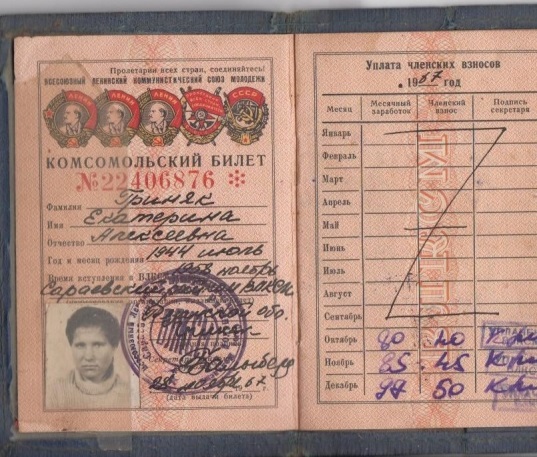 Пролетарии всех стран, соединяйтесь!
ВСЕСОЮЗНЫЙ ЛЕНИНСКИЙ КОММУНИСТИЧЕСКИЙ СОЮЗ МОЛОДЕЖИ
ЛЕНИН ЛЕНИН ЛЕНИН СССР
КОМСОМОЛЬСКИЙ БИЛЕТ
№22406876 *
Фамилия Гриняк
Имя Екатерина
Отчество Алексеевна
Год и месяц рождения 1944 июль
Время вступления в ВЛКСМ 1958 ноябрь
Сараевский ВЛКСМ
обл.
28 ноября 67 г.
(дата выдачи билета)
Уплата членских взносов
1967 год
Месяц Месячный заработок Членский взнос Подпись секретаря
Январь
Февраль
Март
Апрель
Май
Июнь
Июль
Август
Сентябрь
Октябрь 80 40
Ноябрь 85 45
Декабрь 99 50